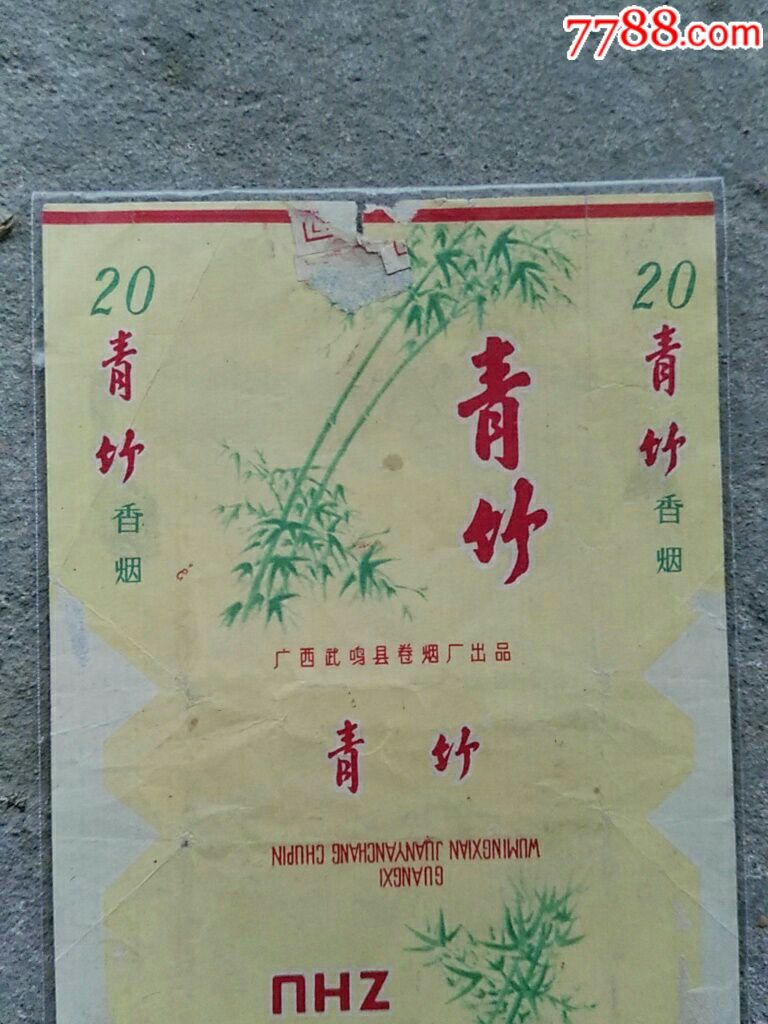 7788.com
20
青竹
香烟
青竹
20
青竹
香烟
广西武鸣县卷烟厂出品
青竹
GUANGXI
WUMINGXIAN JUANYANCHANG CHUPIN
ZHU